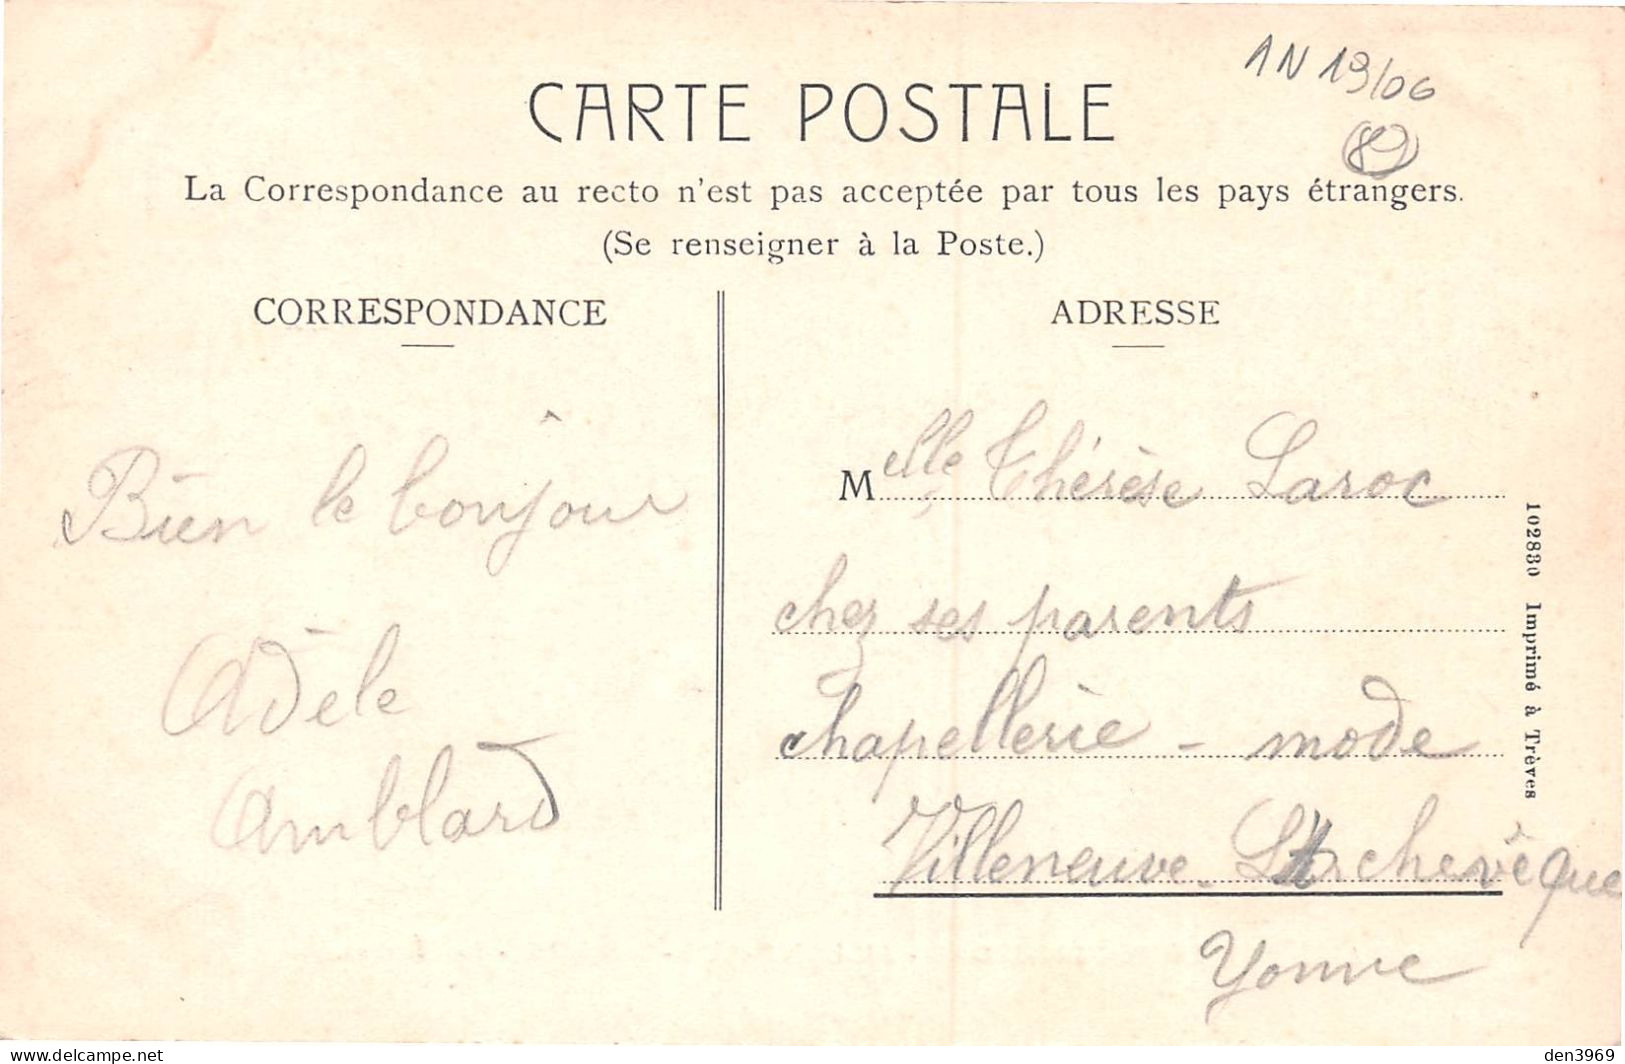 1N 19/06
82
CARTE POSTALE
La Correspondance au recto n'est pas acceptée par tous les pays étrangers.
(Se renseigner à la Poste.)
CORRESPONDANCE
Bien le bonjour
Adèle
Amblard
ADRESSE
Melle Thérèse Laroc
chez ses parents
chapellerie - mode
Villeneuve-L'Archevêque
Yonne
102830 Imprimé à Trèves
delcampe.net
den3969